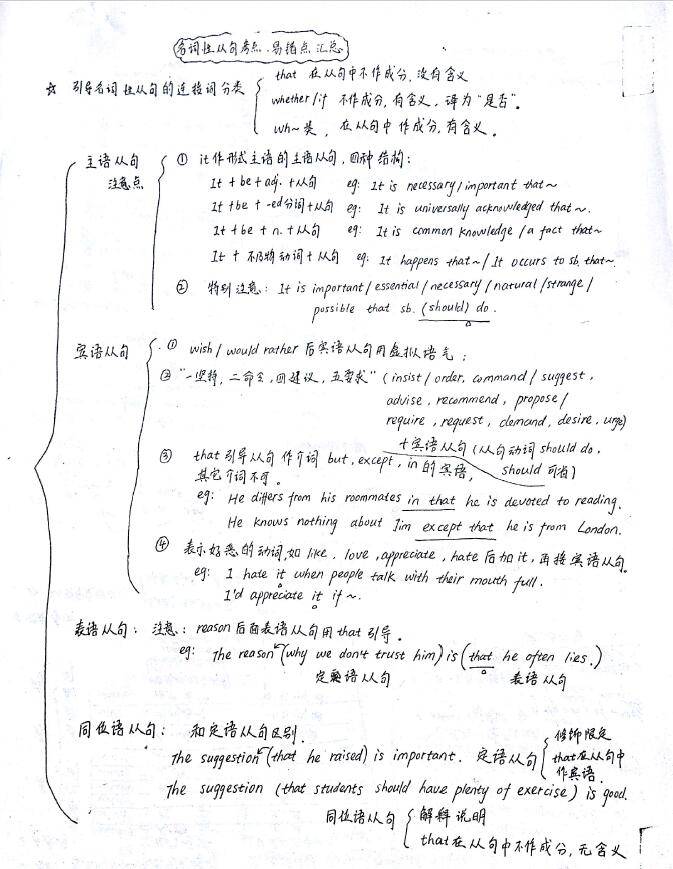 名词性从句考点、易错点汇总
☆ 引导名词性从句的连接词分类
that 在从句中不作成分,没有含义
whether/if 不作成分,有含义,译为“是否”。
wh~类,在从句中作成分,有含义。
主语从句
注意点
① it作形式主语的主语从句,四种结构:
It + be + adj. + 从句 eg: It is necessary/important that~
It + be + -ed分词 + 从句 eg: It is universally acknowledged that~.
It + be + n. + 从句 eg: It is common knowledge / a fact that~
It + 不及物动词 + 从句 eg: It happens that~ / It occurs to sb. that~.
② 特别注意: It is important / essential / necessary / natural / strange /
possible that sb. (should) do.
宾语从句
① wish / would rather 后宾语从句用虚拟语气;
② “一坚持,二命令,四建议,五要求” (insist / order, command / suggest,
advise, recommend, propose /
require, request, demand, desire, urge)
+宾语从句(从句动词 should do,
should 可省)
③ that引导从句作介词 but, except, in 的宾语,
其它介词不可。
eg: He differs from his roommates in that he is devoted to reading.
He knows nothing about Jim except that he is from London.
④ 表示好恶的动词,如 like, love, appreciate, hate 后加it,再接宾语从句。
eg: I hate it when people talk with their mouth full.
I'd appreciate it if ~.
表语从句: 注意: reason 后面表语从句用that引导。
eg: The reason (why we don't trust him) is (that he often lies.)
定语从句 表语从句
同位语从句: 和定语从句区别.
The suggestion (that he raised) is important. 定语从句
修饰限定
that在从句中
作宾语.
The suggestion (that students should have plenty of exercise) is good.
同位语从句
解释说明
that在从句中不作成分,无含义